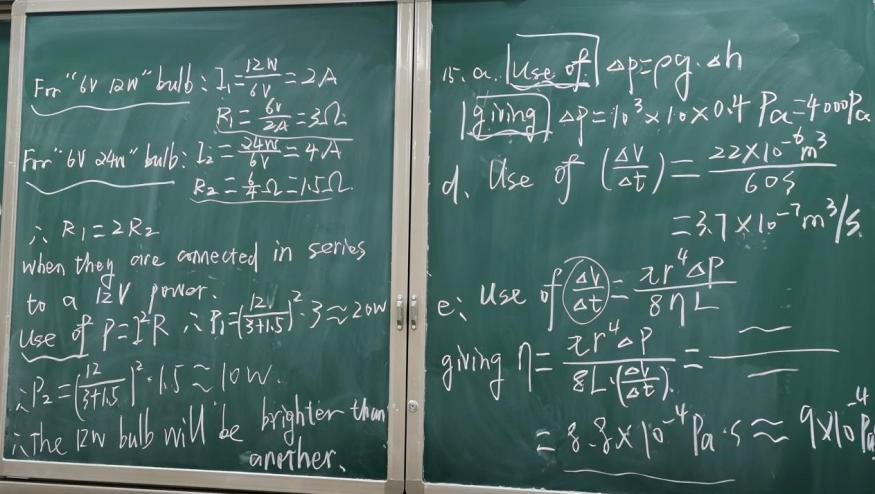 For "6V 12W" bulb : I₁ = 12W/6V = 2A
R₁ = 6V/2A = 3Ω
For "6V 24W" bulb : I₂ = 24W/6V = 4A
R₂ = 6/4 Ω = 1.5Ω.
∴ R₁ = 2R₂
when they are connected in series
to a 12V power.
Use of P = I²R ∴ P₁ = (12V/3+1.5)² · 3 ≈ 20W
∴ P₂ = (12/3+1.5)² · 1.5 ≈ 10W.
∴ the 12W bulb will be brighter than
another.
15. a. Use of Δp = ρg · Δh
giving Δp = 10³ × 10 × 0.4 Pa = 4000Pa
d. Use of (ΔV/Δt) = 22×10⁻⁶m³/60s
= 3.7 × 10⁻⁷ m³/s.
e: Use of ΔV/Δt = πr⁴ΔP/8ηL
giving η = πr⁴ΔP/8L·(ΔV/Δt) =
= 8.8 × 10⁻⁴ Pa·s ≈ 9×10⁻⁴ Pa